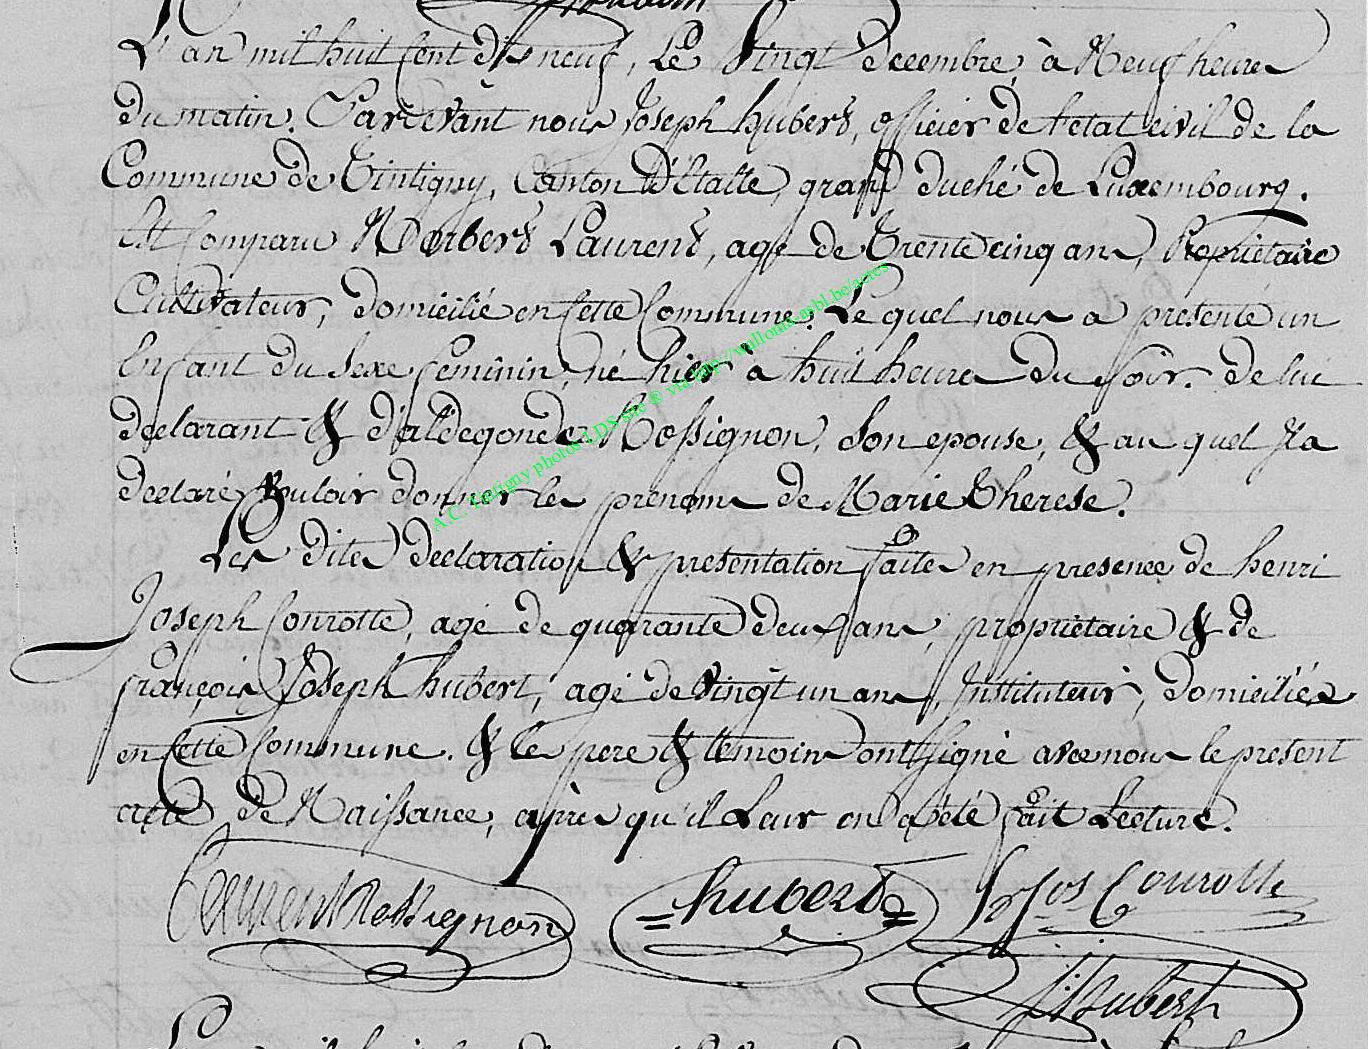 L'an mil huit cent dix neuf, Le Vingt decembre, à Neuf heures
du matin. Pardevant nous Joseph hubert, officier de l'etat civil de la
Commune de Tintigny, Canton d'Etalle, grand duché de Luxembourg.
Est Comparu Norbert Laurent, agé de Trente cinq ans, Propriétaire
Cultivateur, domicilié en Cette Commune. Le quel nous a presenté un
Enfant du sexe feminin, né hier à huit heures du soir. de lui
declarant & d'aldegonde Rossignon, Son epouse, & au quel Il a
declaré Vouloir donner les prenoms de Marie Therese.
Les dites declaration & presentation faites en presence de henri
Joseph Conrotte, agé de quarante deux ans, propriétaire & de
françois Joseph hubert, agé de Vingt un ans, Instituteur, domiciliés
en Cette Commune. & le pere & temoins ont signé avec nous le present
acte de Naissance, après qu'il Leur en a été fait Lecture.
Rossignon hubert Jos Conrotte
Hubert
A.C. Tintigny photos LDS site @ via http://wallonia-asbl.be/actes